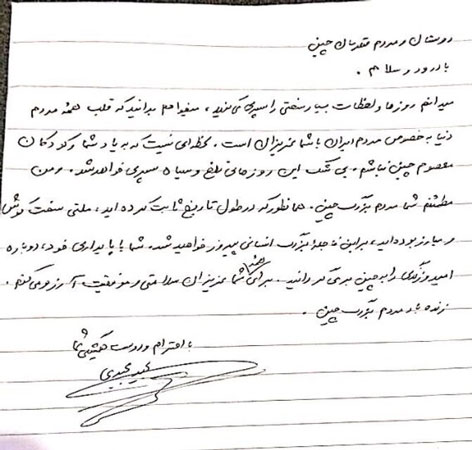 دوستان و مردم قهرمان چین
با درود و سلام .
میدانم روزها و لحظات بسیار سختی را سپری می‌کنید ، میخواهم بدانید که قلب همه مردم
دنیا به خصوص مردم ایران با شما عزیزان است . لحظه‌ای نیست که به یاد شما و کودکان
معصوم چین نباشم . بی شک این روزهای تلخ و سیاه سپری خواهد شد . و من
مطمئنم شما مردم بزرگ چین . همانطور که در طول تاریخ ثابت کرده اید ، ملتی سخت کوش
و مبارز بوده اید ، بر این فاجعهٔ بزرگ انسانی پیروز خواهید شد . شما با پایداری خود ، دوباره
امید و زندگی را به چین برمی گردانید . برای همهٔ شما عزیزان سلامتی و موفقیت آرزو می‌کنم .
زنده باد مردم بزرگ چین .
با احترام و دوست همیشگی شما
مجید مجیدی